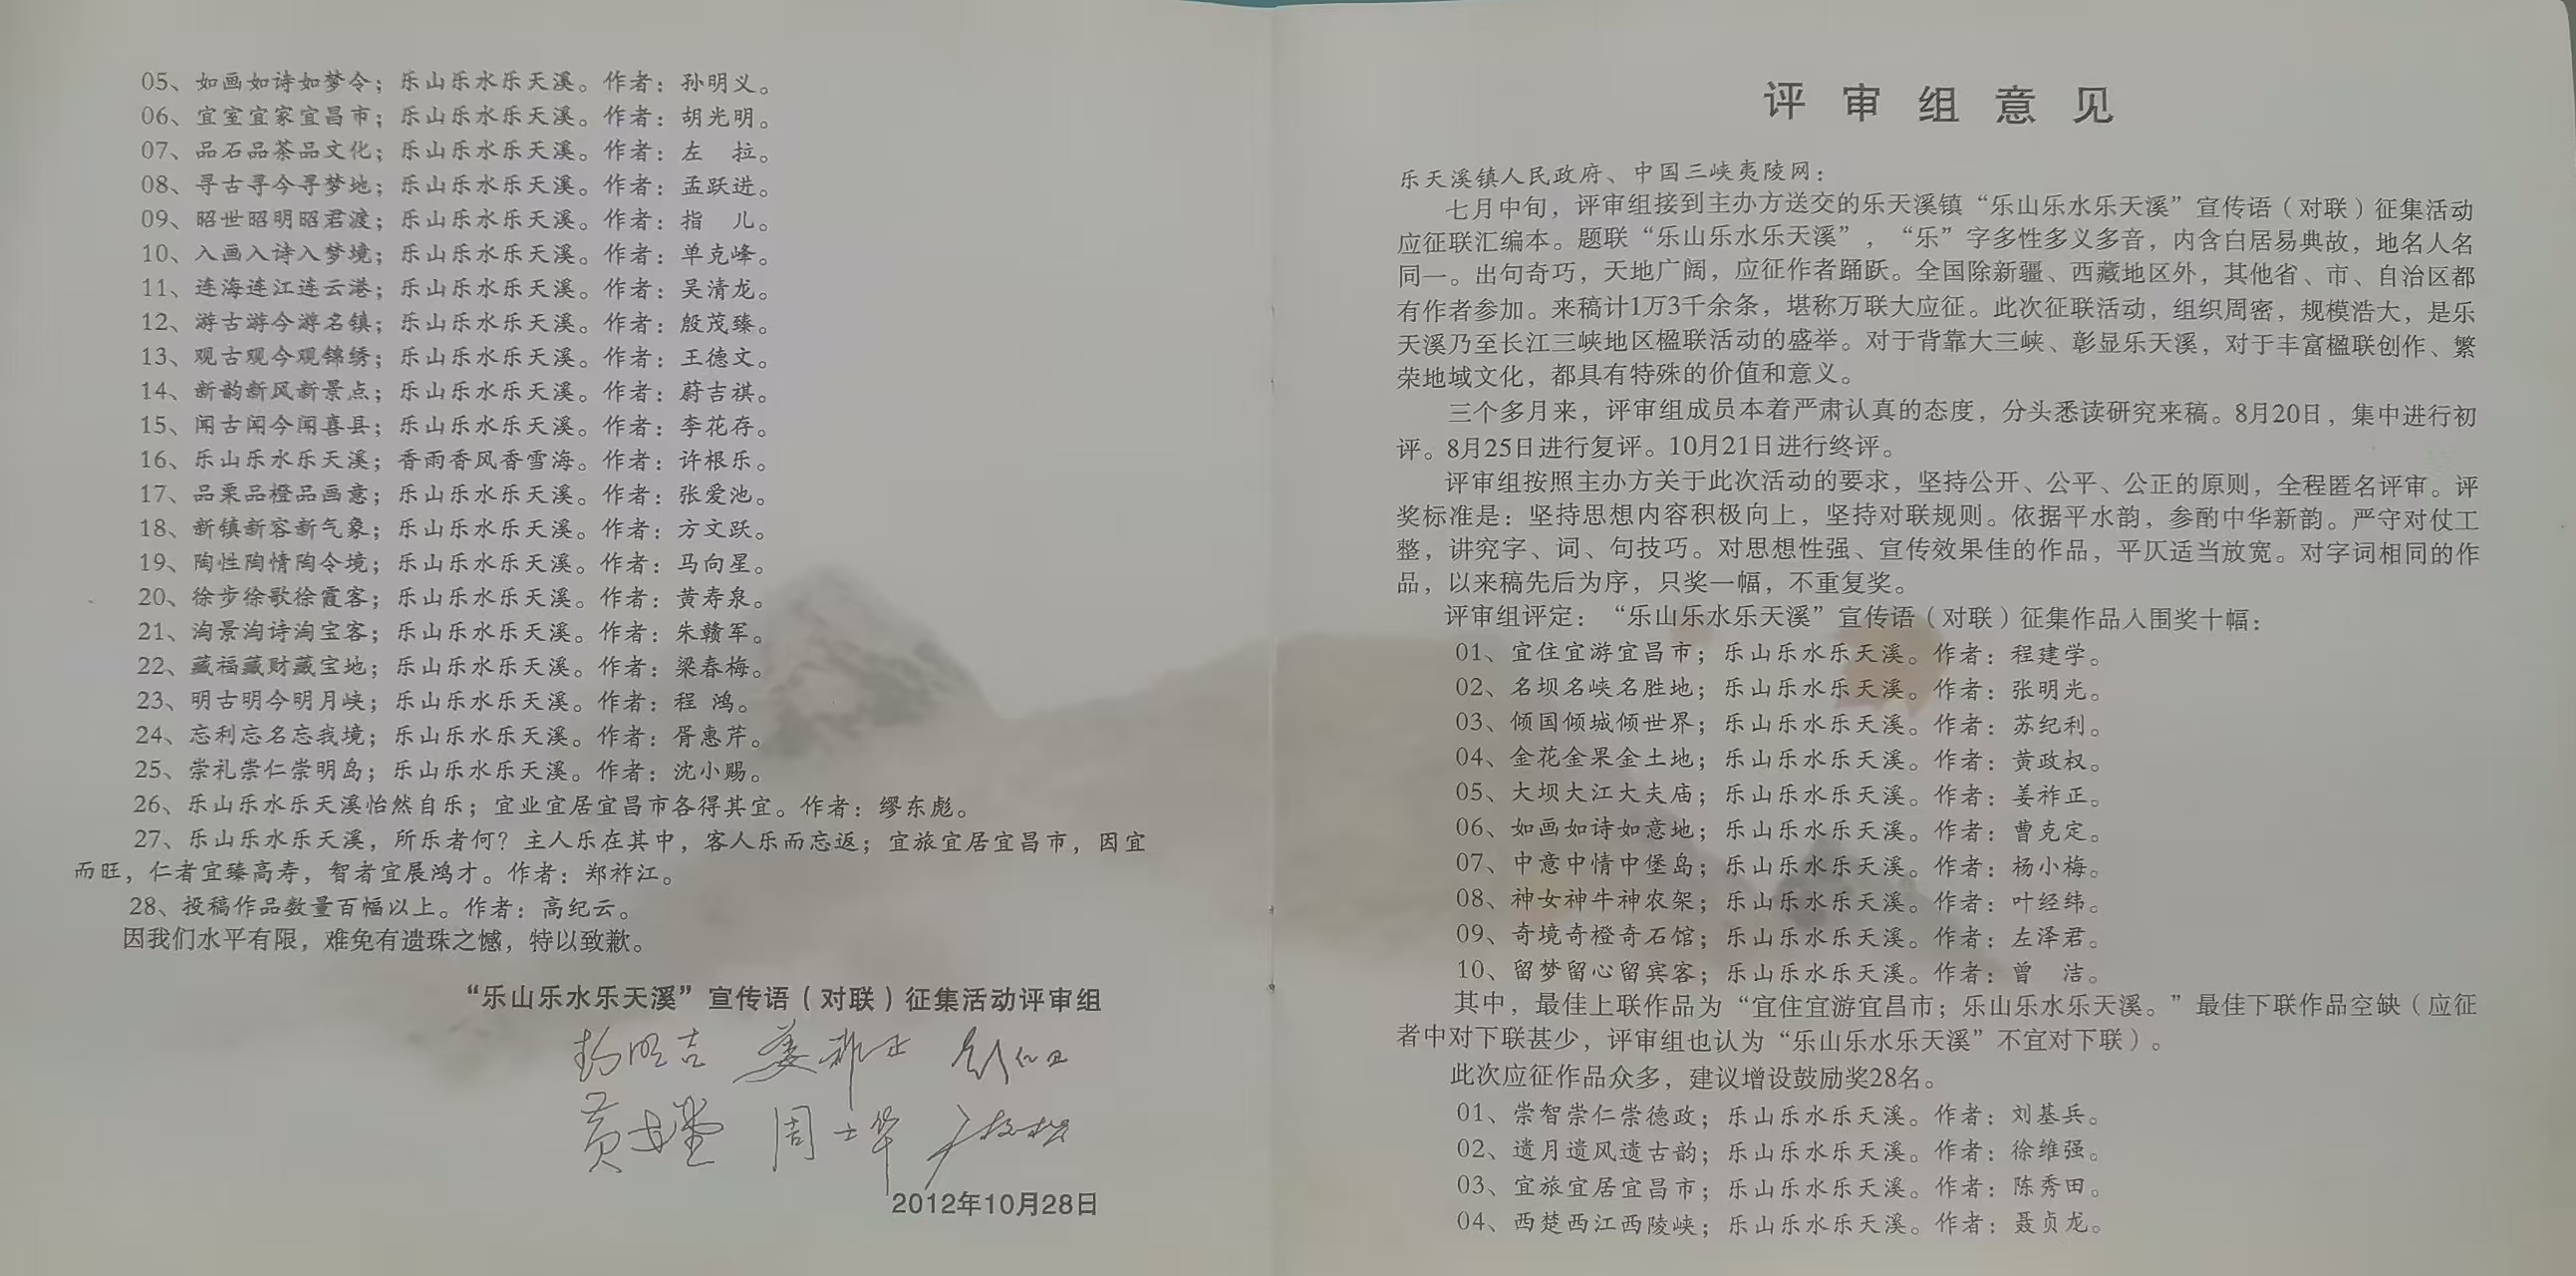 评审组意见
乐天溪镇人民政府、中国三峡夷陵网：
七月中旬，评审组接到主办方送交的乐天溪镇“乐山乐水乐天溪”宣传语（对联）征集活动
应征联汇编本。题联“乐山乐水乐天溪”，“乐”字多性多义多音，内含白居易典故，地名人名
同一。出句奇巧，天地广阔，应征作者踊跃。全国除新疆、西藏地区外，其他省、市、自治区都
有作者参加。来稿计1万3千余条，堪称万联大应征。此次征联活动，组织周密，规模浩大，是乐
天溪乃至长江三峡地区楹联活动的盛举。对于背靠大三峡、彰显乐天溪，对于丰富楹联创作、繁
荣地域文化，都具有特殊的价值和意义。
三个多月来，评审组成员本着严肃认真的态度，分头悉读研究来稿。8月20日，集中进行初
评。8月25日进行复评。10月21日进行终评。
评审组按照主办方关于此次活动的要求，坚持公开、公平、公正的原则，全程匿名评审。评
奖标准是：坚持思想内容积极向上，坚持对联规则。依据平水韵，参酌中华新韵。严守对仗工
整，讲究字、词、句技巧。对思想性强、宣传效果佳的作品，平仄适当放宽。对字词相同的作
品，以来稿先后为序，只奖一幅，不重复奖。
评审组评定：“乐山乐水乐天溪”宣传语（对联）征集作品入围奖十幅：
01、宜住宜游宜昌市；乐山乐水乐天溪。作者：程建学。
02、名坝名峡名胜地；乐山乐水乐天溪。作者：张明光。
03、倾国倾城倾世界；乐山乐水乐天溪。作者：苏纪利。
04、金花金果金土地；乐山乐水乐天溪。作者：黄政权。
05、大坝大江大夫庙；乐山乐水乐天溪。作者：姜祚正。
06、如画如诗如意地；乐山乐水乐天溪。作者：曹克定。
07、中意中情中堡岛；乐山乐水乐天溪。作者：杨小梅。
08、神女神牛神农架；乐山乐水乐天溪。作者：叶经纬。
09、奇境奇橙奇石馆；乐山乐水乐天溪。作者：左泽君。
10、留梦留心留宾客；乐山乐水乐天溪。作者：曾　洁。
其中，最佳上联作品为“宜住宜游宜昌市；乐山乐水乐天溪。”最佳下联作品空缺（应征
者中对下联甚少，评审组也认为“乐山乐水乐天溪”不宜对下联）。
此次应征作品众多，建议增设鼓励奖28名。
01、崇智崇仁崇德政；乐山乐水乐天溪。作者：刘基兵。
02、遗月遗风遗古韵；乐山乐水乐天溪。作者：徐维强。
03、宜旅宜居宜昌市；乐山乐水乐天溪。作者：陈秀田。
04、西楚西江西陵峡；乐山乐水乐天溪。作者：聂贞龙。
05、如画如诗如梦令；乐山乐水乐天溪。作者：孙明义。
06、宜室宜家宜昌市；乐山乐水乐天溪。作者：胡光明。
07、品石品茶品文化；乐山乐水乐天溪。作者：左　拉。
08、寻古寻今寻梦地；乐山乐水乐天溪。作者：孟跃进。
09、昭世昭明昭君渡；乐山乐水乐天溪。作者：指　儿。
10、入画入诗入梦境；乐山乐水乐天溪。作者：单克峰。
11、连海连江连云港；乐山乐水乐天溪。作者：吴清龙。
12、游古游今游名镇；乐山乐水乐天溪。作者：殷茂臻。
13、观古观今观锦绣；乐山乐水乐天溪。作者：王德文。
14、新韵新风新景点；乐山乐水乐天溪。作者：蔚吉祺。
15、闻古闻今闻喜县；乐山乐水乐天溪。作者：李花存。
16、乐山乐水乐天溪；香雨香风香雪海。作者：许根乐。
17、品栗品橙品画意；乐山乐水乐天溪。作者：张爱池。
18、新镇新容新气象；乐山乐水乐天溪。作者：方文跃。
19、陶性陶情陶令境；乐山乐水乐天溪。作者：马向星。
20、徐步徐歌徐霞客；乐山乐水乐天溪。作者：黄寿泉。
21、淘景淘诗淘宝客；乐山乐水乐天溪。作者：朱赣军。
22、藏福藏财藏宝地；乐山乐水乐天溪。作者：梁春梅。
23、明古明今明月峡；乐山乐水乐天溪。作者：程 鸿。
24、忘利忘名忘我境；乐山乐水乐天溪。作者：胥惠芹。
25、崇礼崇仁崇明岛；乐山乐水乐天溪。作者：沈小赐。
26、乐山乐水乐天溪怡然自乐；宜业宜居宜昌市各得其宜。作者：缪东彪。
27、乐山乐水乐天溪，所乐者何？主人乐在其中，客人乐而忘返；宜旅宜居宜昌市，因宜
而旺，仁者宜臻高寿，智者宜展鸿才。作者：郑祚江。
28、投稿作品数量百幅以上。作者：高纪云。
因我们水平有限，难免有遗珠之憾，特以致歉。
“乐山乐水乐天溪”宣传语（对联）征集活动评审组
姜祚正
周士华
2012年10月28日